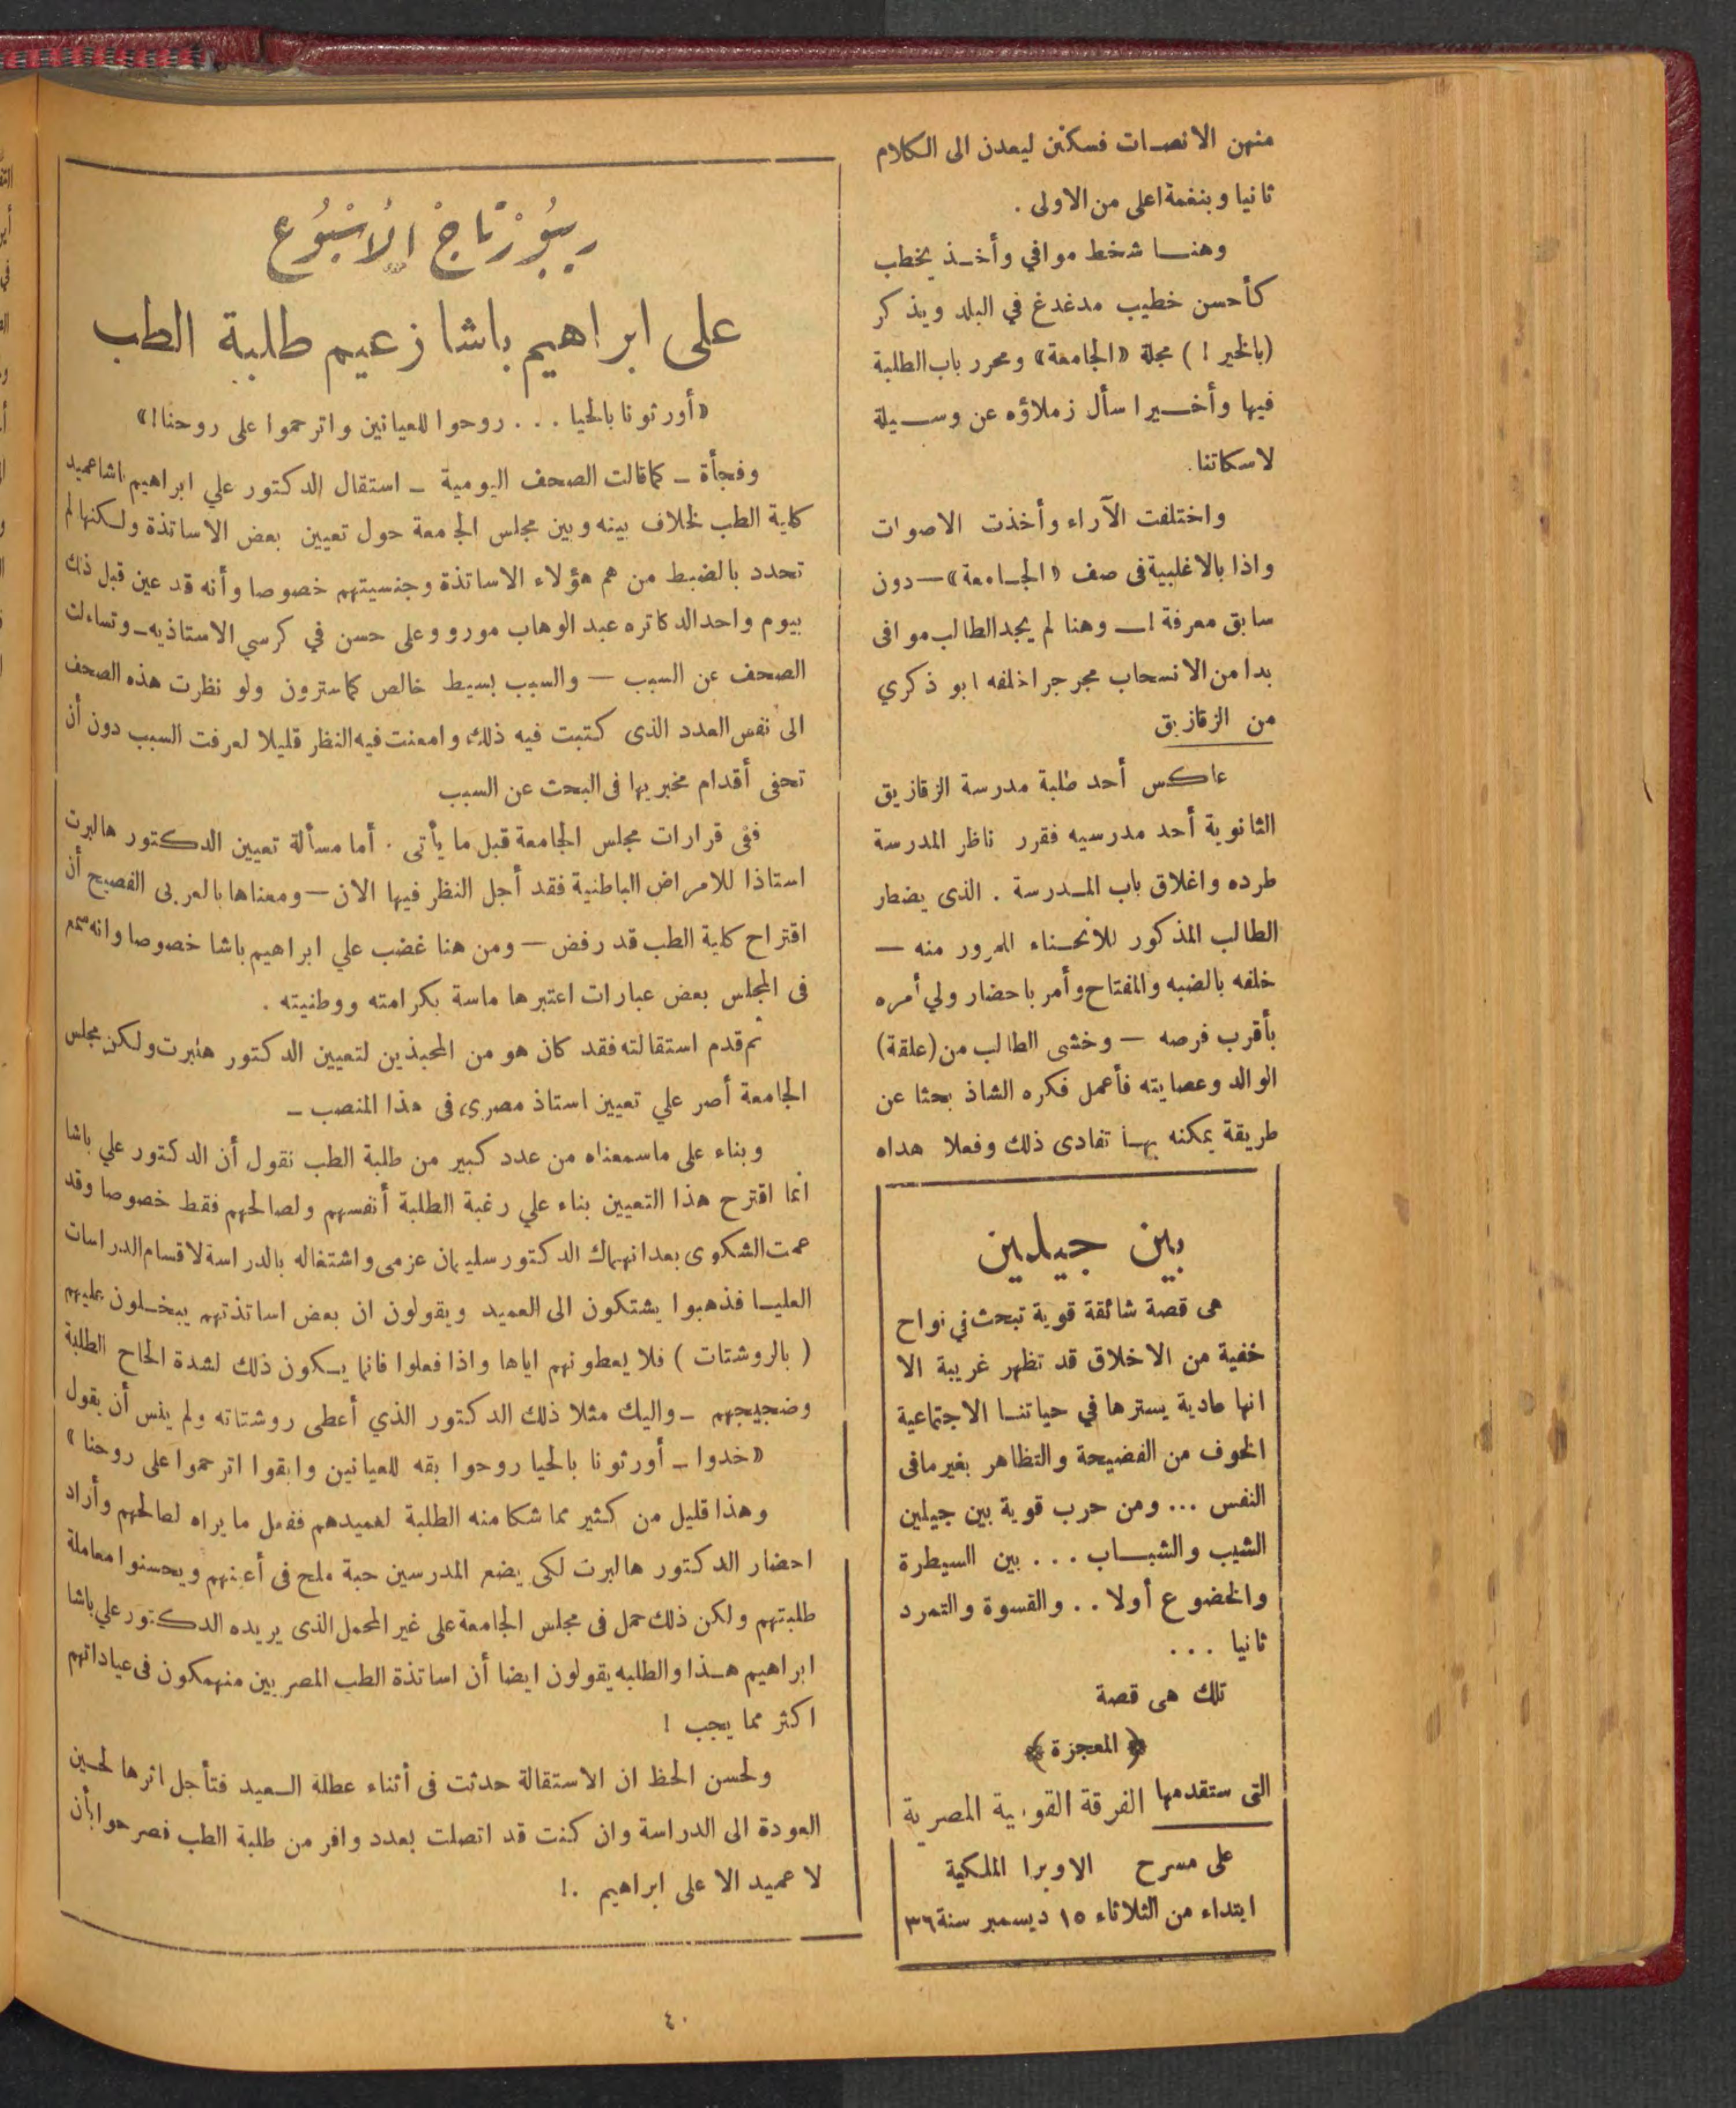 منهن الانصات فسكتن ليعدن الى الكلام
ثانيا وبنغمة اعلى من الاولى .
وهنا شخط موافي وأخذ يخطب
كأحسن خطيب مدغدغ في البلد ويذكر
(بالخير ! ) مجلة «الجامعة» ومحرر باب الطلبة
فيها وأخيرا سأل زملاؤه عن وسيلة
لاسكاتنا .
واختلفت الآراء وأخذت الاصوات
واذا بالاغلبية فى صف «الجامعة» — دون
سابق معرفة ! — وهنا لم يجد الطالب موافى
بدا من الانسحاب مجرجرا خلفه ابو ذكري
من الزقازيق
عاكس أحد طلبة مدرسة الزقازيق
الثانوية أحد مدرسيه فقرر ناظر المدرسة
طرده واغلاق باب المدرسة . الذى يضطر
الطالب المذكور للانحناء للمرور منه —
خلفه بالضبه والمفتاح وأمر باحضار ولي أمره
بأقرب فرصه — وخشى الطالب من (علقة)
الوالد وعصايته فأعمل فكره الشاذ بحثا عن
طريقة يمكنه بها تفادى ذلك وفعلا هداه
بين جيلين
هى قصة شائقة قوية تبحث في نواح
خفية من الاخلاق قد تظهر غريبة الا
انها عادية يسترها في حياتنا الاجتماعية
الخوف من الفضيحة والتظاهر بغير مافى
النفس ... ومن حرب قوية بين جيلين
الشيب والشباب ... بين السيطرة
والخضوع أولا .. والقسوة والتمرد
ثانيا ...
تلك هى قصة
﴿ المعجزة ﴾
التى ستقدمها الفرقة القومية المصرية
على مسرح الاوبرا الملكية
ابتداء من الثلاثاء ١٥ ديسمبر سنة ٣٦
ريبورتاج الأسبوع
على ابراهيم باشا زعيم طلبة الطب
«أورثونا بالحيا ... روحوا للعيانين واترحموا على روحنا !»
وفجأة ـ كما قالت الصحف اليومية ـ استقال الدكتور علي ابراهيم باشا عميد
كلية الطب لخلاف بينه وبين مجلس الجامعة حول تعيين بعض الاساتذة ولكنها لم
تحدد بالضبط من هم هؤلاء الاساتذة وجنسيتهم خصوصا وأنه قد عين قبل ذلك
بيوم واحد الدكاتره عبد الوهاب مورو وعلى حسن في كرسي الاستاذيه ـ وتساءلت
الصحف عن السبب — والسبب بسيط خالص كما سترون ولو نظرت هذه الصحف
الى نفس العدد الذى كتبت فيه ذلك وامعنت فيه النظر قليلا لعرفت السبب دون أن
تحفى أقدام مخبريها فى البحث عن السبب
ففى قرارات مجلس الجامعة قبل ما يأتى . أما مسألة تعيين الدكتور هالبرت
استاذا للامراض الباطنية فقد أجل النظر فيها الان — ومعناها بالعربى الفصيح أن
اقتراح كلية الطب قد رفض — ومن هنا غضب علي ابراهيم باشا خصوصا وانه سمع
فى المجلس بعض عبارات اعتبرها ماسة بكرامته ووطنيته .
ثم قدم استقالته فقد كان هو من المحبذين لتعيين الدكتور هلبرت ولكن مجلس
الجامعة أصر علي تعيين استاذ مصرى فى هذا المنصب ـ
وبناء على ماسمعناه من عدد كبير من طلبة الطب نقول أن الدكتور علي باشا
انما اقترح هذا التعيين بناء علي رغبة الطلبة أنفسهم ولصالحهم فقط خصوصا وقد
عمت الشكوى بعد انهماك الدكتور سليمان عزمى واشتغاله بالدراسة لاقسام الدراسات
العليا فذهبوا يشتكون الى العميد ويقولون ان بعض اساتذتهم يبخلون عليهم
( بالروشتات ) فلا يعطونهم اياها واذا فعلوا فانما يكون ذلك لشدة الحاح الطلبة
وضجيجهم ـ واليك مثلا ذلك الدكتور الذي أعطى روشتاته ولم ينس أن يقول
«خدوا ـ أورثونا بالحيا روحوا بقه للعيانين وابقوا اترحموا على روحنا»
وهذا قليل من كثير مما شكا منه الطلبة لعميدهم ففعل ما يراه لصالحهم وأراد
احضار الدكتور هالبرت لكى يضع المدرسين حبة ملح فى أعينهم ويحسنوا معاملة
طلبتهم ولكن ذلك حمل فى مجلس الجامعة على غير المحمل الذى يريده الدكتور علي باشا
ابراهيم هذا والطلبه يقولون ايضا أن اساتذة الطب المصريين منهمكون فى عياداتهم
اكثر مما يجب !
ولحسن الحظ ان الاستقالة حدثت فى أثناء عطلة العيد فتأجل اثرها لحين
العودة الى الدراسة وان كنت قد اتصلت بعدد وافر من طلبة الطب فصرحوا بأن
لا عميد الا على ابراهيم .!
٤٠